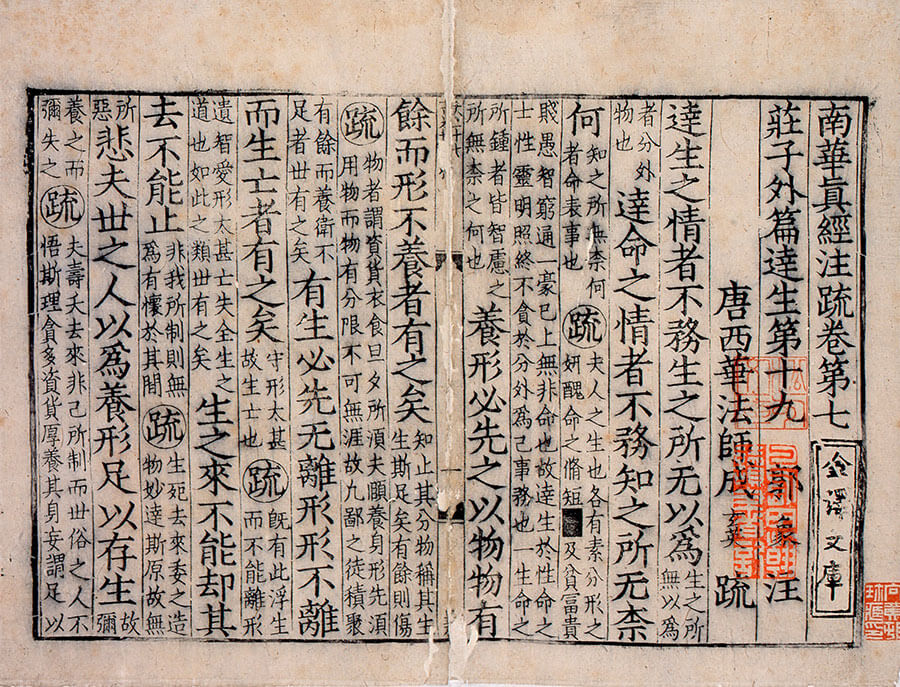 南華眞經注疏卷第七
莊子外篇達生第十九 郭象注
唐西華法師成玄英疏
金澤文庫
達生之情者不務生之所无以爲 生之所無以爲
者分外物也 達命之情者不務知之所无柰
何 知之所無柰何者命表事也 疏 夫人之生也各有素分形之妍醜命之脩短及貧富貴
賤愚智窮通一豪已上無非命也故達生於性命之士性靈明照終不貪於分外爲己事務也一生命之
所鍾者皆智慮之所無柰之何也 養形必先之以物物有
餘而形不養者有之矣 知止其分物稱其生斯足矣有餘則傷
疏 物者謂資貨衣食旦夕所湏夫頤養身形先湏用物而物有分限不可無涯故九鄙之徒積聚
有餘而養衛不足者丗有之矣 有生必先无離形形不離
而生亡者有之矣 守形太甚故生亡也 疏 旣有此浮生而不能離形
遺智愛形太甚亡失全生之道也如此之類丗有之矣 生之來不能却其
去不能止 非我所制則無爲有懷於其間 疏 生死去來委之造物妙達斯原故無
所惡 悲夫丗之人以爲養形足以存生 故彌
養之而彌失之 疏 夫壽夭去來非己所制而世俗之人不悟斯理貪多資貨厚養其身妄謂足以